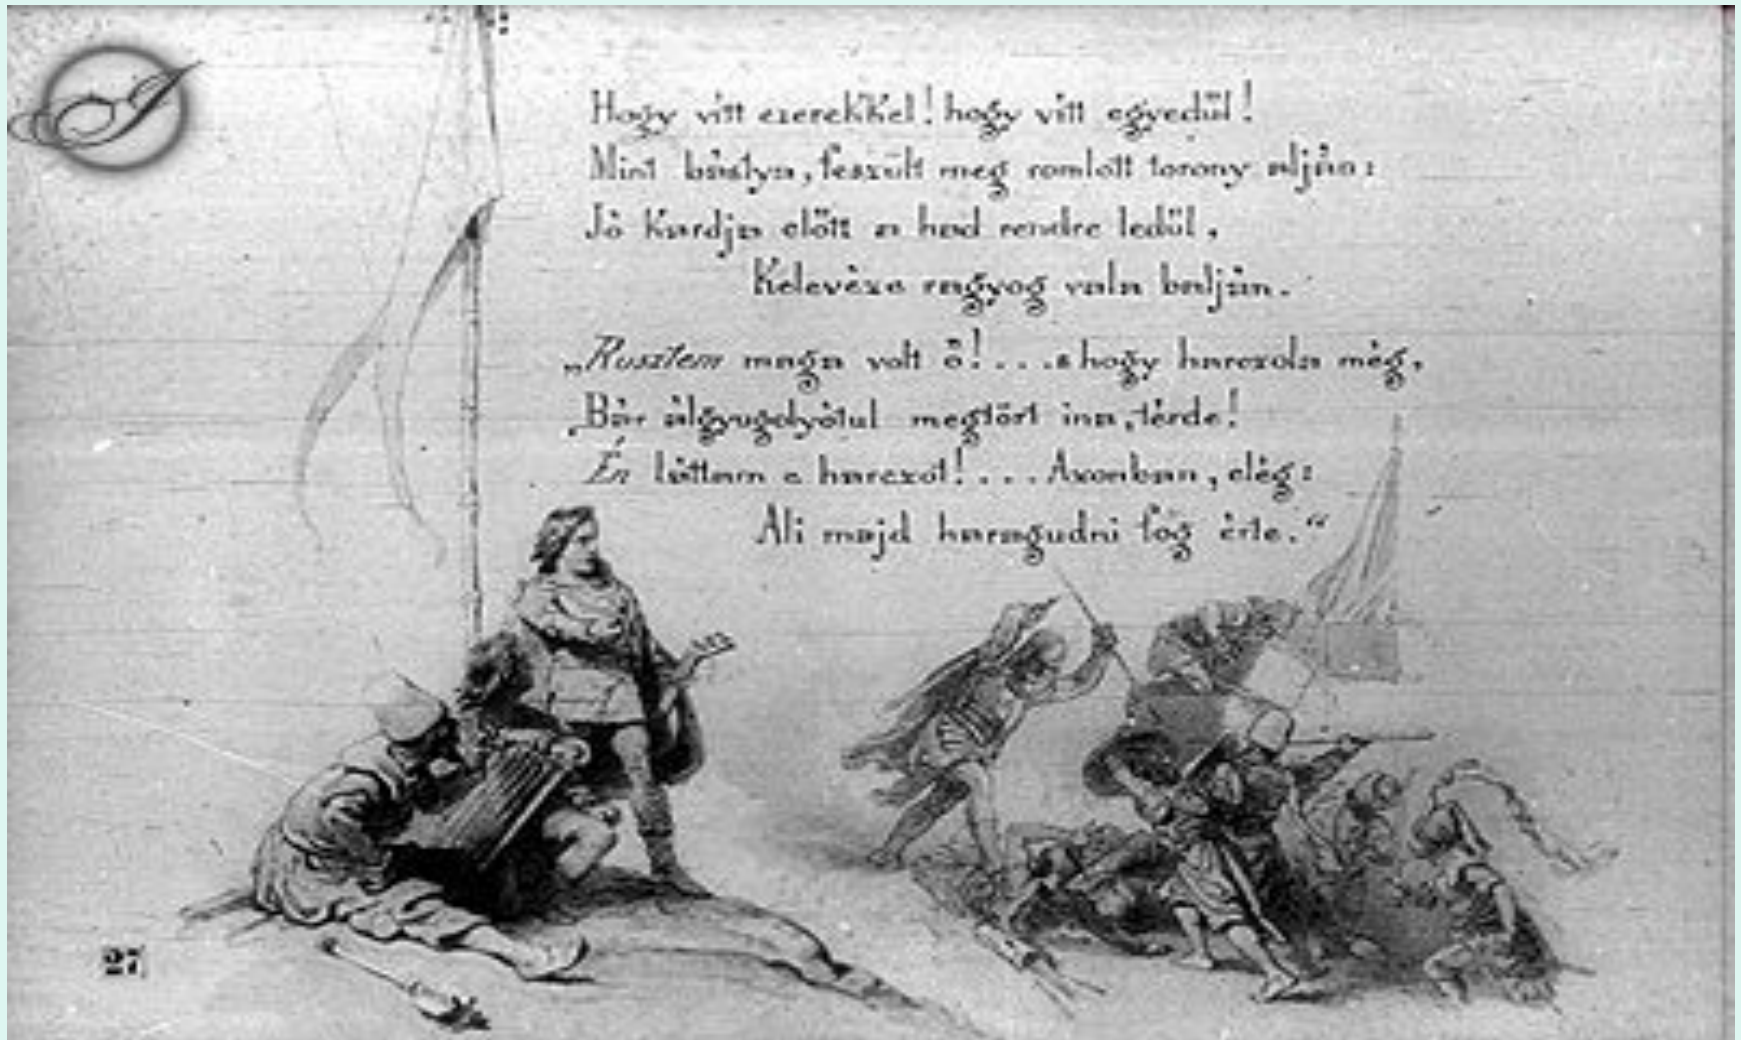 Hogy vítt ezerekkel! hogy vítt egyedűl!
Mint bástya, feszült meg romlott torony alján:
Jó kardja előtt a had rendre ledűl,
Kelevéze ragyog vala balján.
„Rusztem maga volt ő!... s hogy harczola még,
Bár álgyugolyótul megtört ina, térde!
Én láttam e harczot!... Azonban, elég:
Ali majd haragudni fog érte.“
27